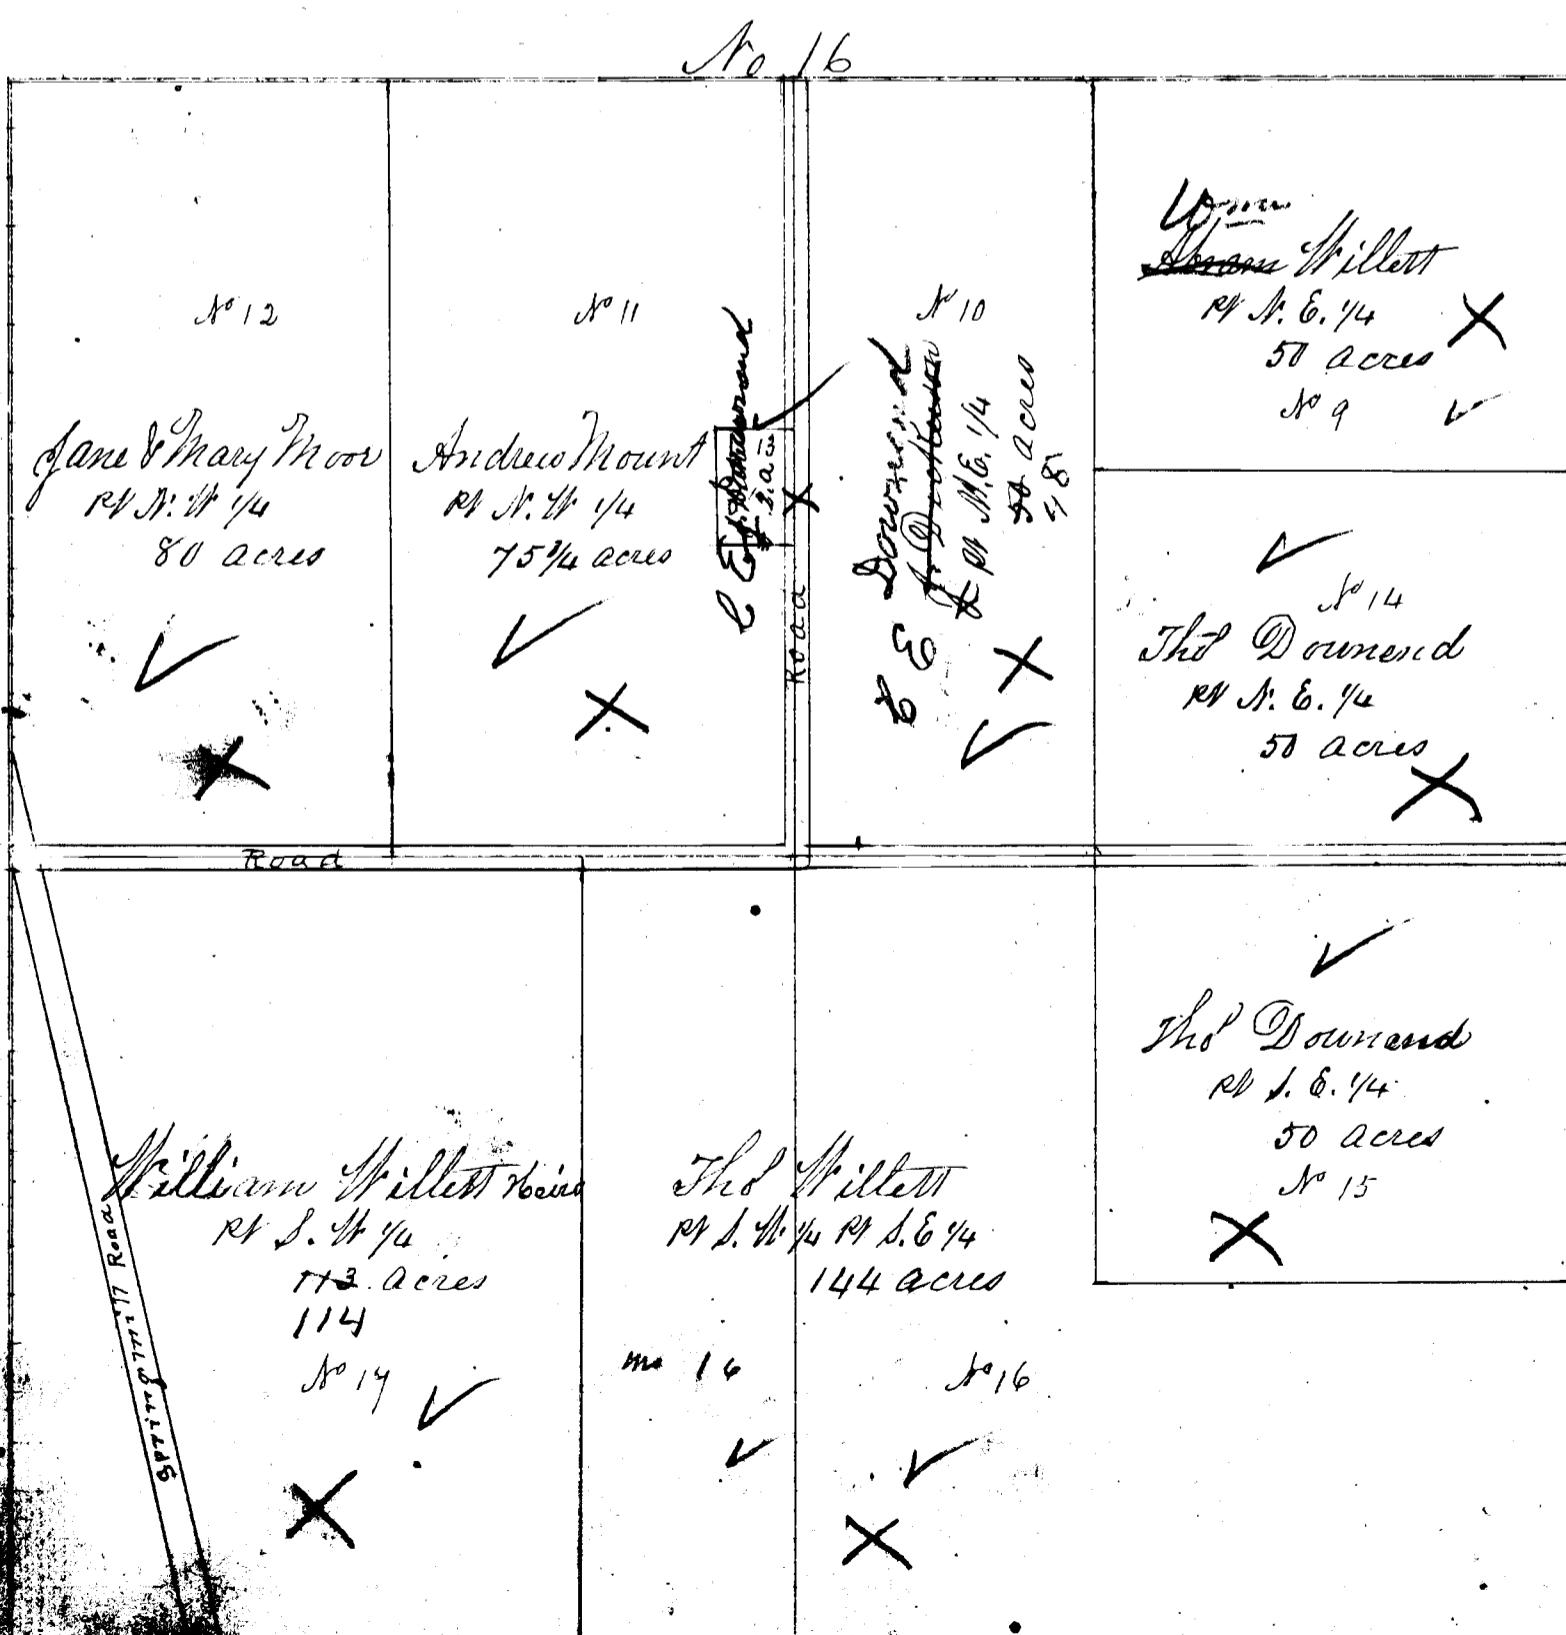 No 16
No 12
Jane & Mary Moor
Pt N. W 1/4
80 acres
No 11
Andrew Mount
Pt N. W 1/4
75 3/4 acres
C E
Road
No 10
C E Downend
Pt N. E. 1/4
50 acres
48
Wm
Abram Willett
Pt N. E. 1/4
50 acres
No 9
No 14
Thos Downend
Pt N. E. 1/4
50 acres
Road
Thos Downend
Pt S. E. 1/4
50 acres
No 15
William Willett Heirs
Pt S. W 1/4
113 acres
114
No 17
Thos Willett
Pt S. W. 1/4 Pt S. E 1/4
144 acres
no 16
No 16
Springmill Road